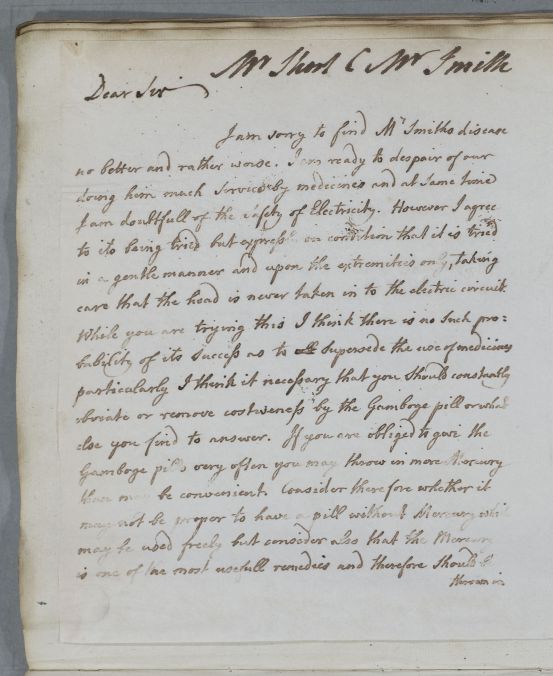 Mr Short C Mr Smith
Dear Sir
I am sorry to find Mr Smiths disease
no better and rather worse. I am ready to despair of our
doing him much service by medicines and at same time
I am doubtfull of the safety of Electricity. However I agree
to its being tried but express on condition that it is tried
in a gentle manner and upon the extremities only, taking
care that the head is never taken in to the electric circuit
While you are trying this I think there is no such pro=
bability of its success as to supersede the use of medicines
particularly I think it necessary that you should constantly
obviate or remove costiveness by the Gamboge pill or what
else you find to answer. If you are obliged to give the
Gamboge pills very often you may throw in more Mercury
than may be convenient. Consider therefore whether it
may not be proper to have a pill without Mercury which
may be used freely but consider also that the Mercury
is one of the most usefull remedies and therefore should be
thrown in